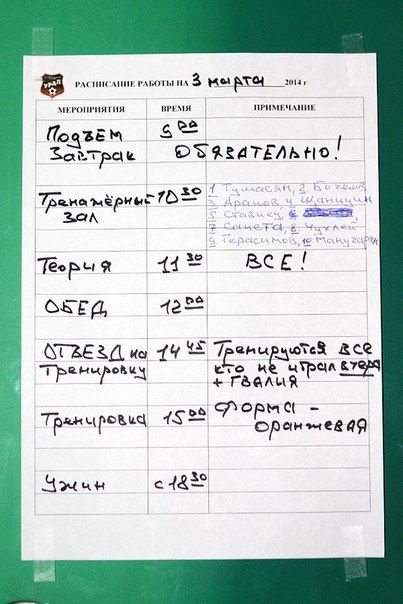 УРАЛ
РАСПИСАНИЕ РАБОТЫ НА 3 марта 2014 г
МЕРОПРИЯТИЯ ВРЕМЯ ПРИМЕЧАНИЕ
Подъем 9 00
Завтрак ОБЯЗАТЕЛЬНО!
Тренажёрный 10 30
зал
1 Тумасян, 2 Бочков
3 Арапов, 4 Щаницин
5 Ставпец, 6
7 Сапета, 8 Чухлей
9 Герасимов, 10 Манучарян
Теория 11 30 ВСЕ!
ОБЕД 12 00
ОТЪЕЗД на 14 45 Тренируются все
Тренировку кто не играл вчера
+ ГВАЛИЯ
Тренировка 15 00 Форма -
оранжевая
Ужин с 18 30